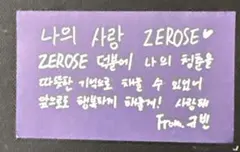 나의 사랑 ZEROSE♥
ZEROSE 덕분에 나의 청춘을
따뜻한 기억으로 채울 수 있었어
앞으로도 행복하게 해줄게! 사랑해
From 규빈